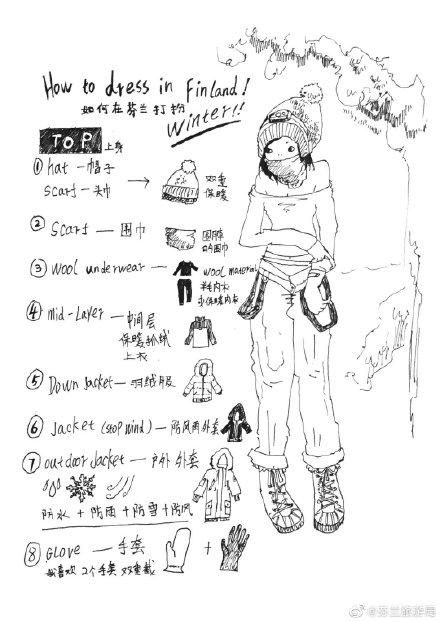 How to dress in Finland!
如何在芬兰打扮
Winter!!
TOP 上身
① hat — 帽子
scarf — 头巾
双重
保暖
② Scarf — 围巾
围脖
的围巾
③ Wool underwear —
wool material
羊毛内衣
保暖内衣
④ mid-Layer — 中间层
保暖抓绒
上衣
⑤ Down Jacket — 羽绒服
⑥ Jacket (stop wind) — 防风雨外套
⑦ outdoor Jacket — 户外外套
防水 + 防雨 + 防雪 + 防风
⑧ GLOVE — 手套
+
我喜欢 2个手套 双重戴
@芬兰旅游局